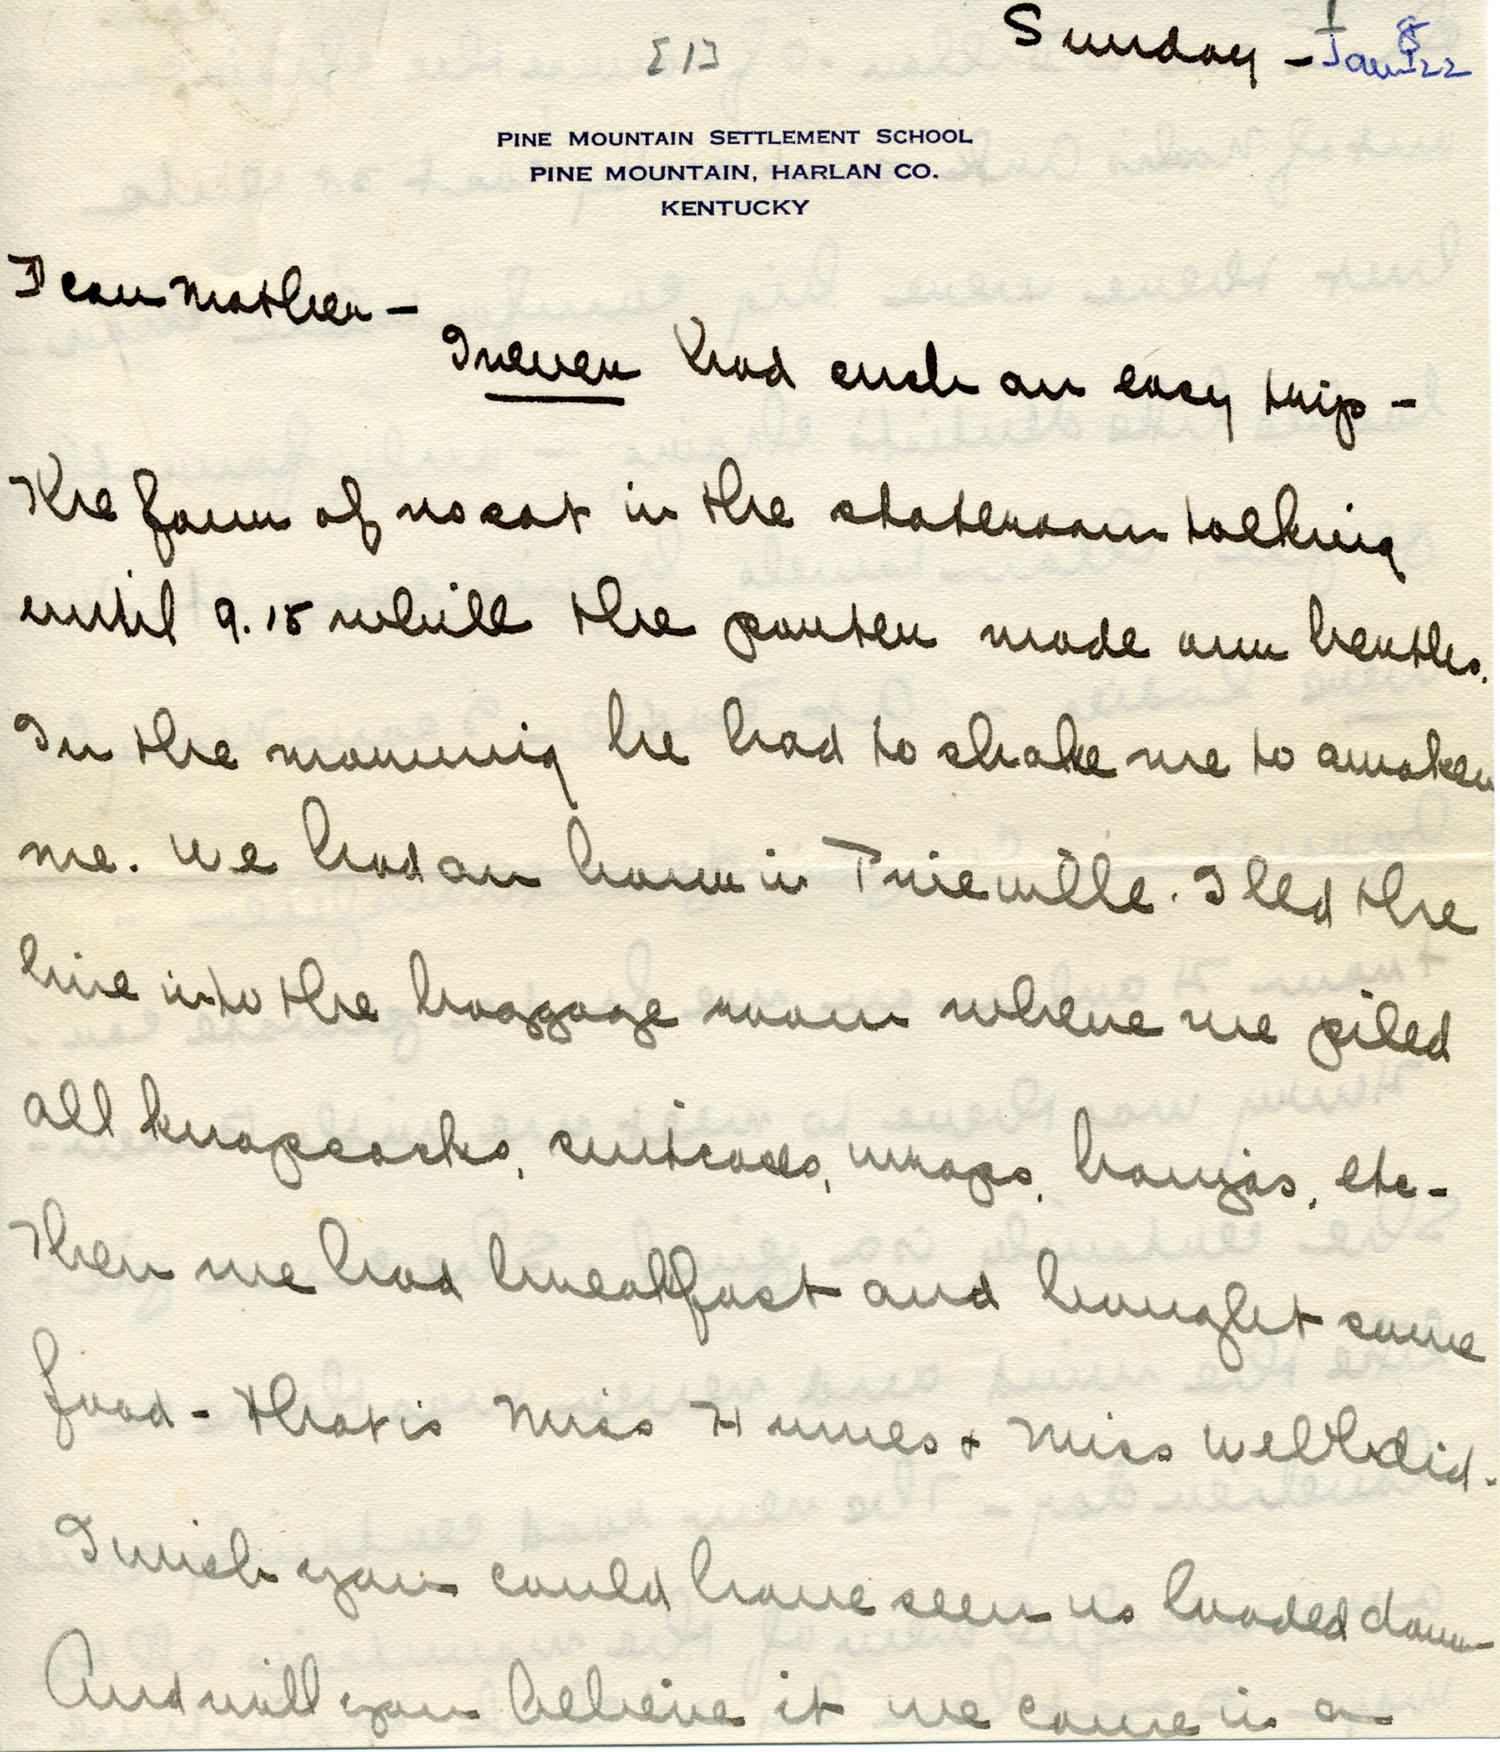 Sunday - Jan 8 22
[1]
PINE MOUNTAIN SETTLEMENT SCHOOL
PINE MOUNTAIN, HARLAN CO.
KENTUCKY
Dear Mother -
I never had such an easy trip -
The four of us sat in the stateroom talking
until 9.15 while the porter made our berths.
In the morning he had to shake me to awaken
me. We had an hour in Pineville. I led the
line into the baggage room where we piled
all knapsacks, suitcases, wraps, banjos, etc -
Then we had breakfast and bought some
food - that is Miss Humes + Miss Wells did.
I wish you could have seen us loaded down
And will you believe it we came in a